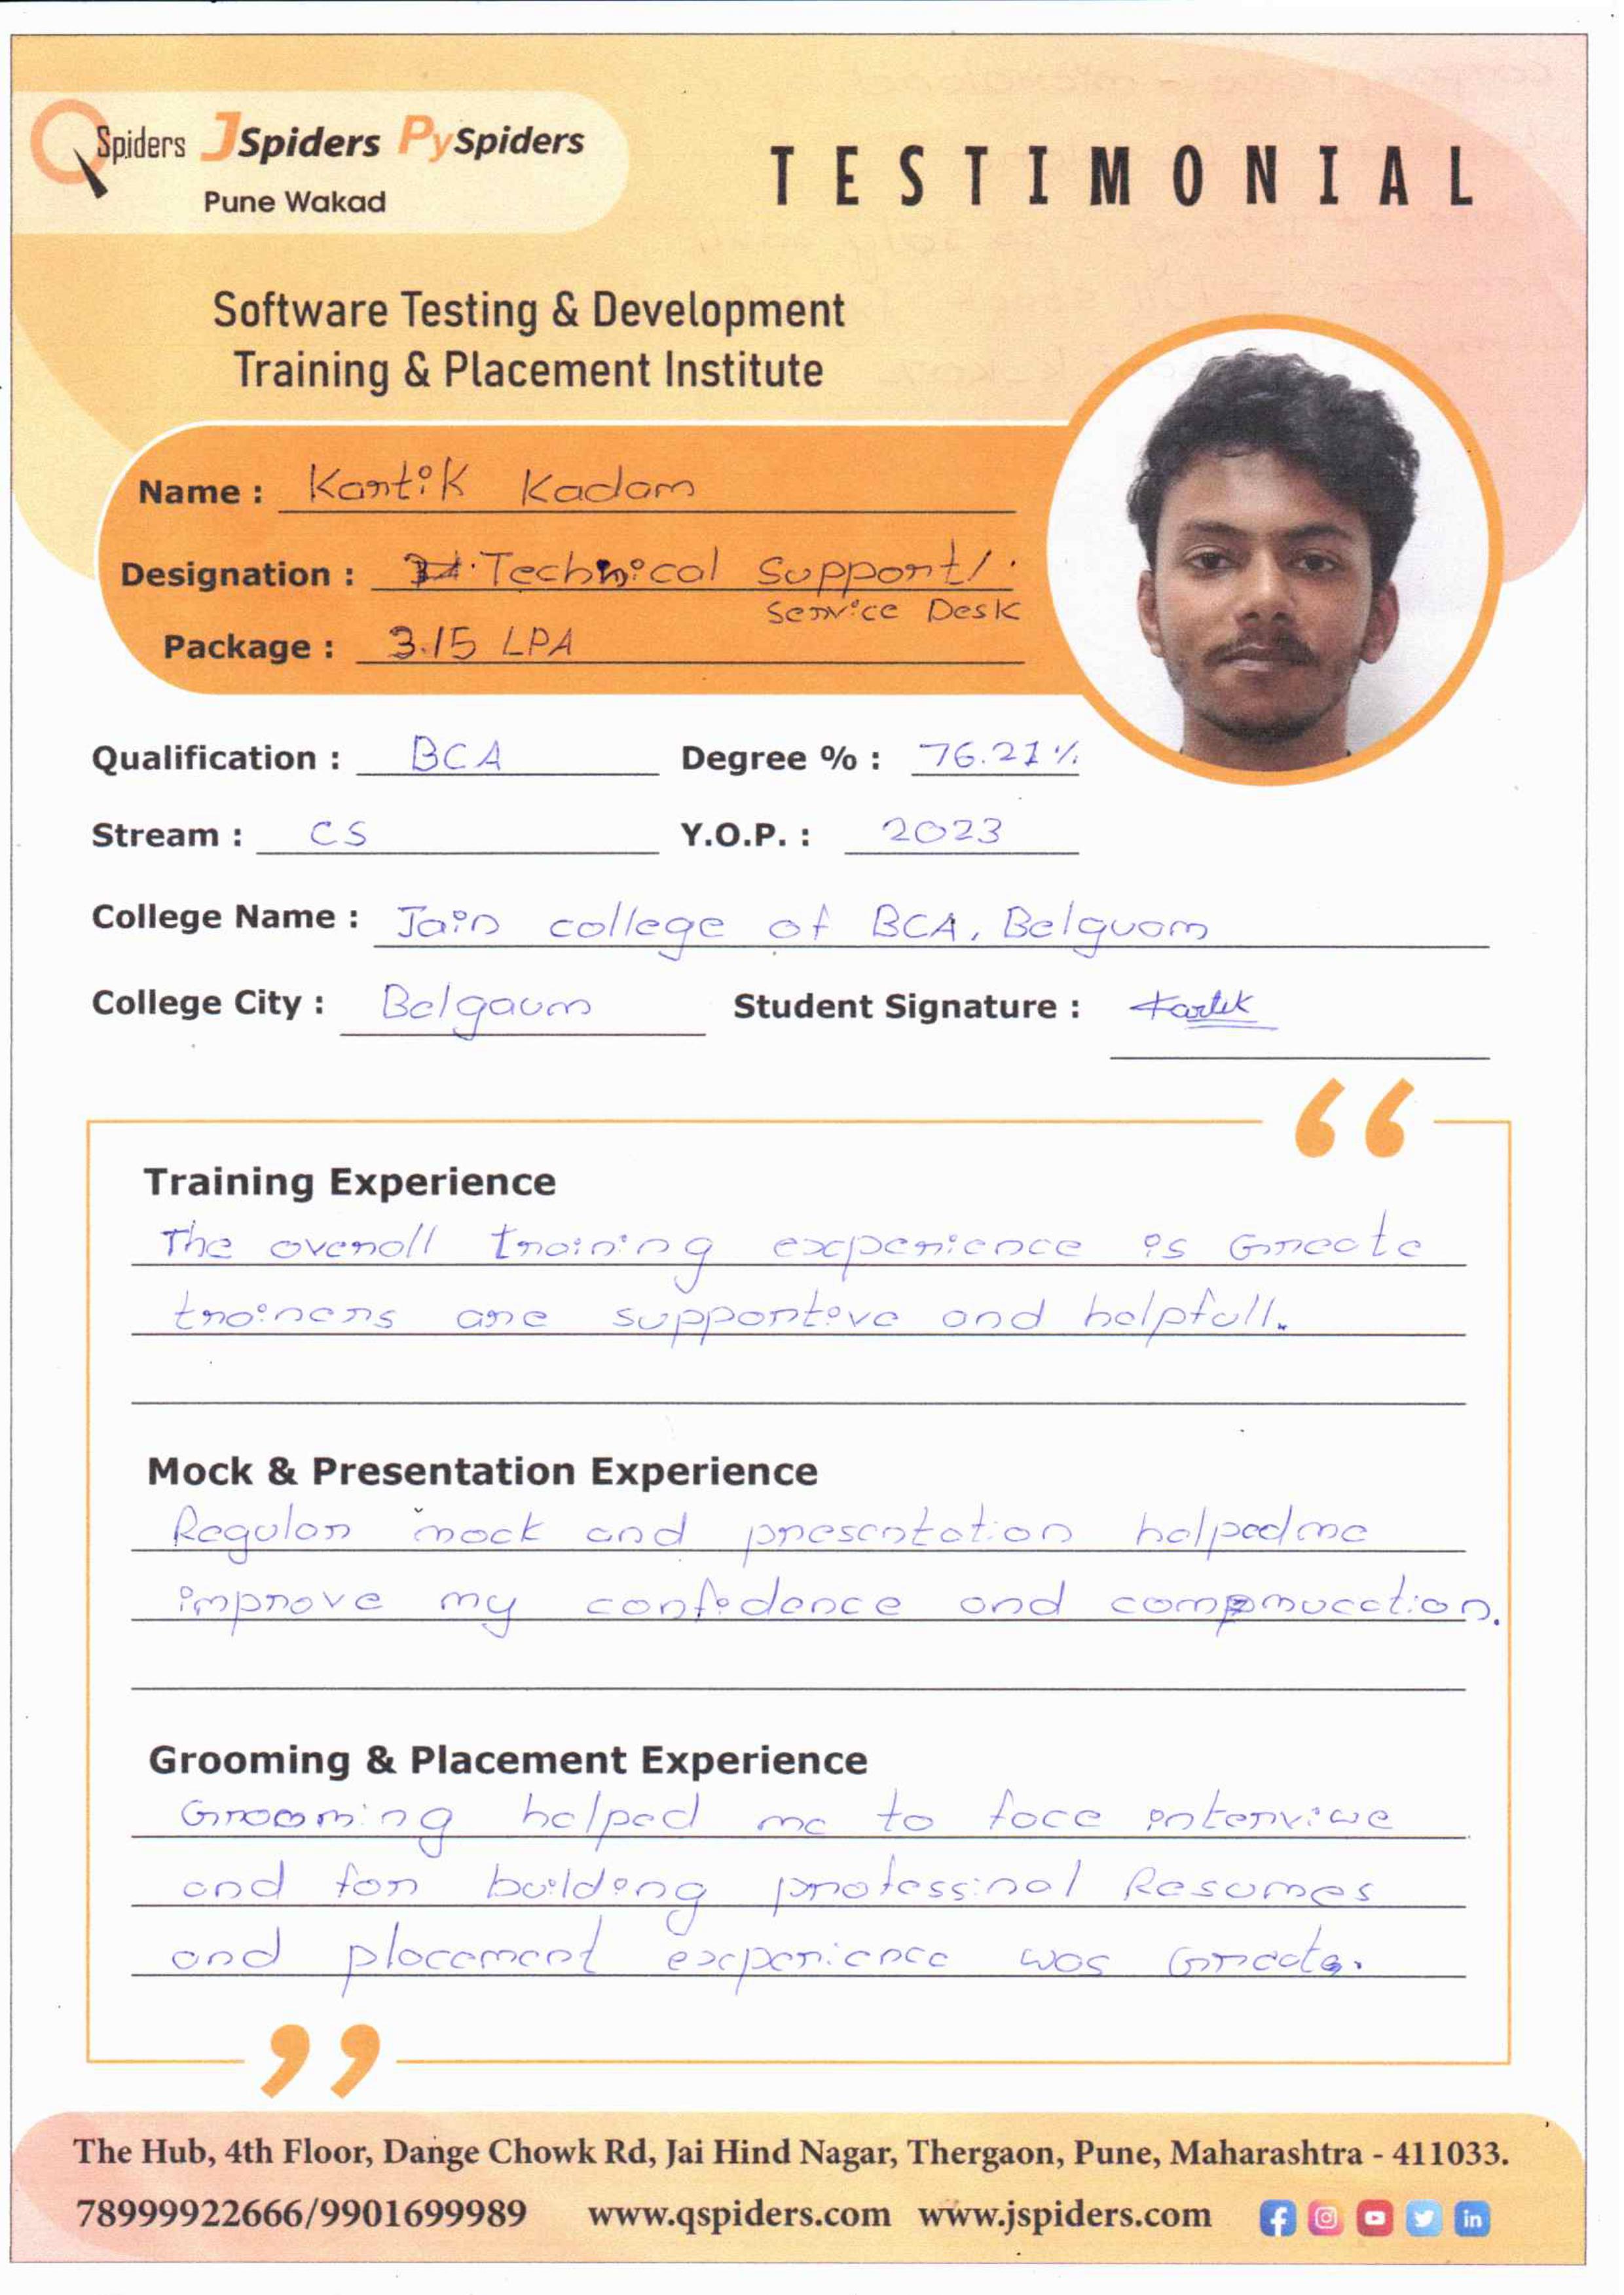 QSpiders JSpiders PySpiders
Pune Wakad
TESTIMONIAL
Software Testing & Development
Training & Placement Institute
Name : Kartik Kadam
Designation : Technical Support/
Service Desk
Package : 3.15 LPA
Qualification : BCA Degree % : 76.21%
Stream : CS Y.O.P. : 2023
College Name : Jain college of BCA, Belguam
College City : Belgaum Student Signature : Kartik
Training Experience
The overall training experience is Greate
trainers are supportive and helpfull.
Mock & Presentation Experience
Regular mock and presentation helped me
improve my confidence and commucation.
Grooming & Placement Experience
Grooming helped me to face interviwe
and for building professinal Resumes
and placement experience was Greate.
The Hub, 4th Floor, Dange Chowk Rd, Jai Hind Nagar, Thergaon, Pune, Maharashtra - 411033.
78999922666/9901699989 www.qspiders.com www.jspiders.com